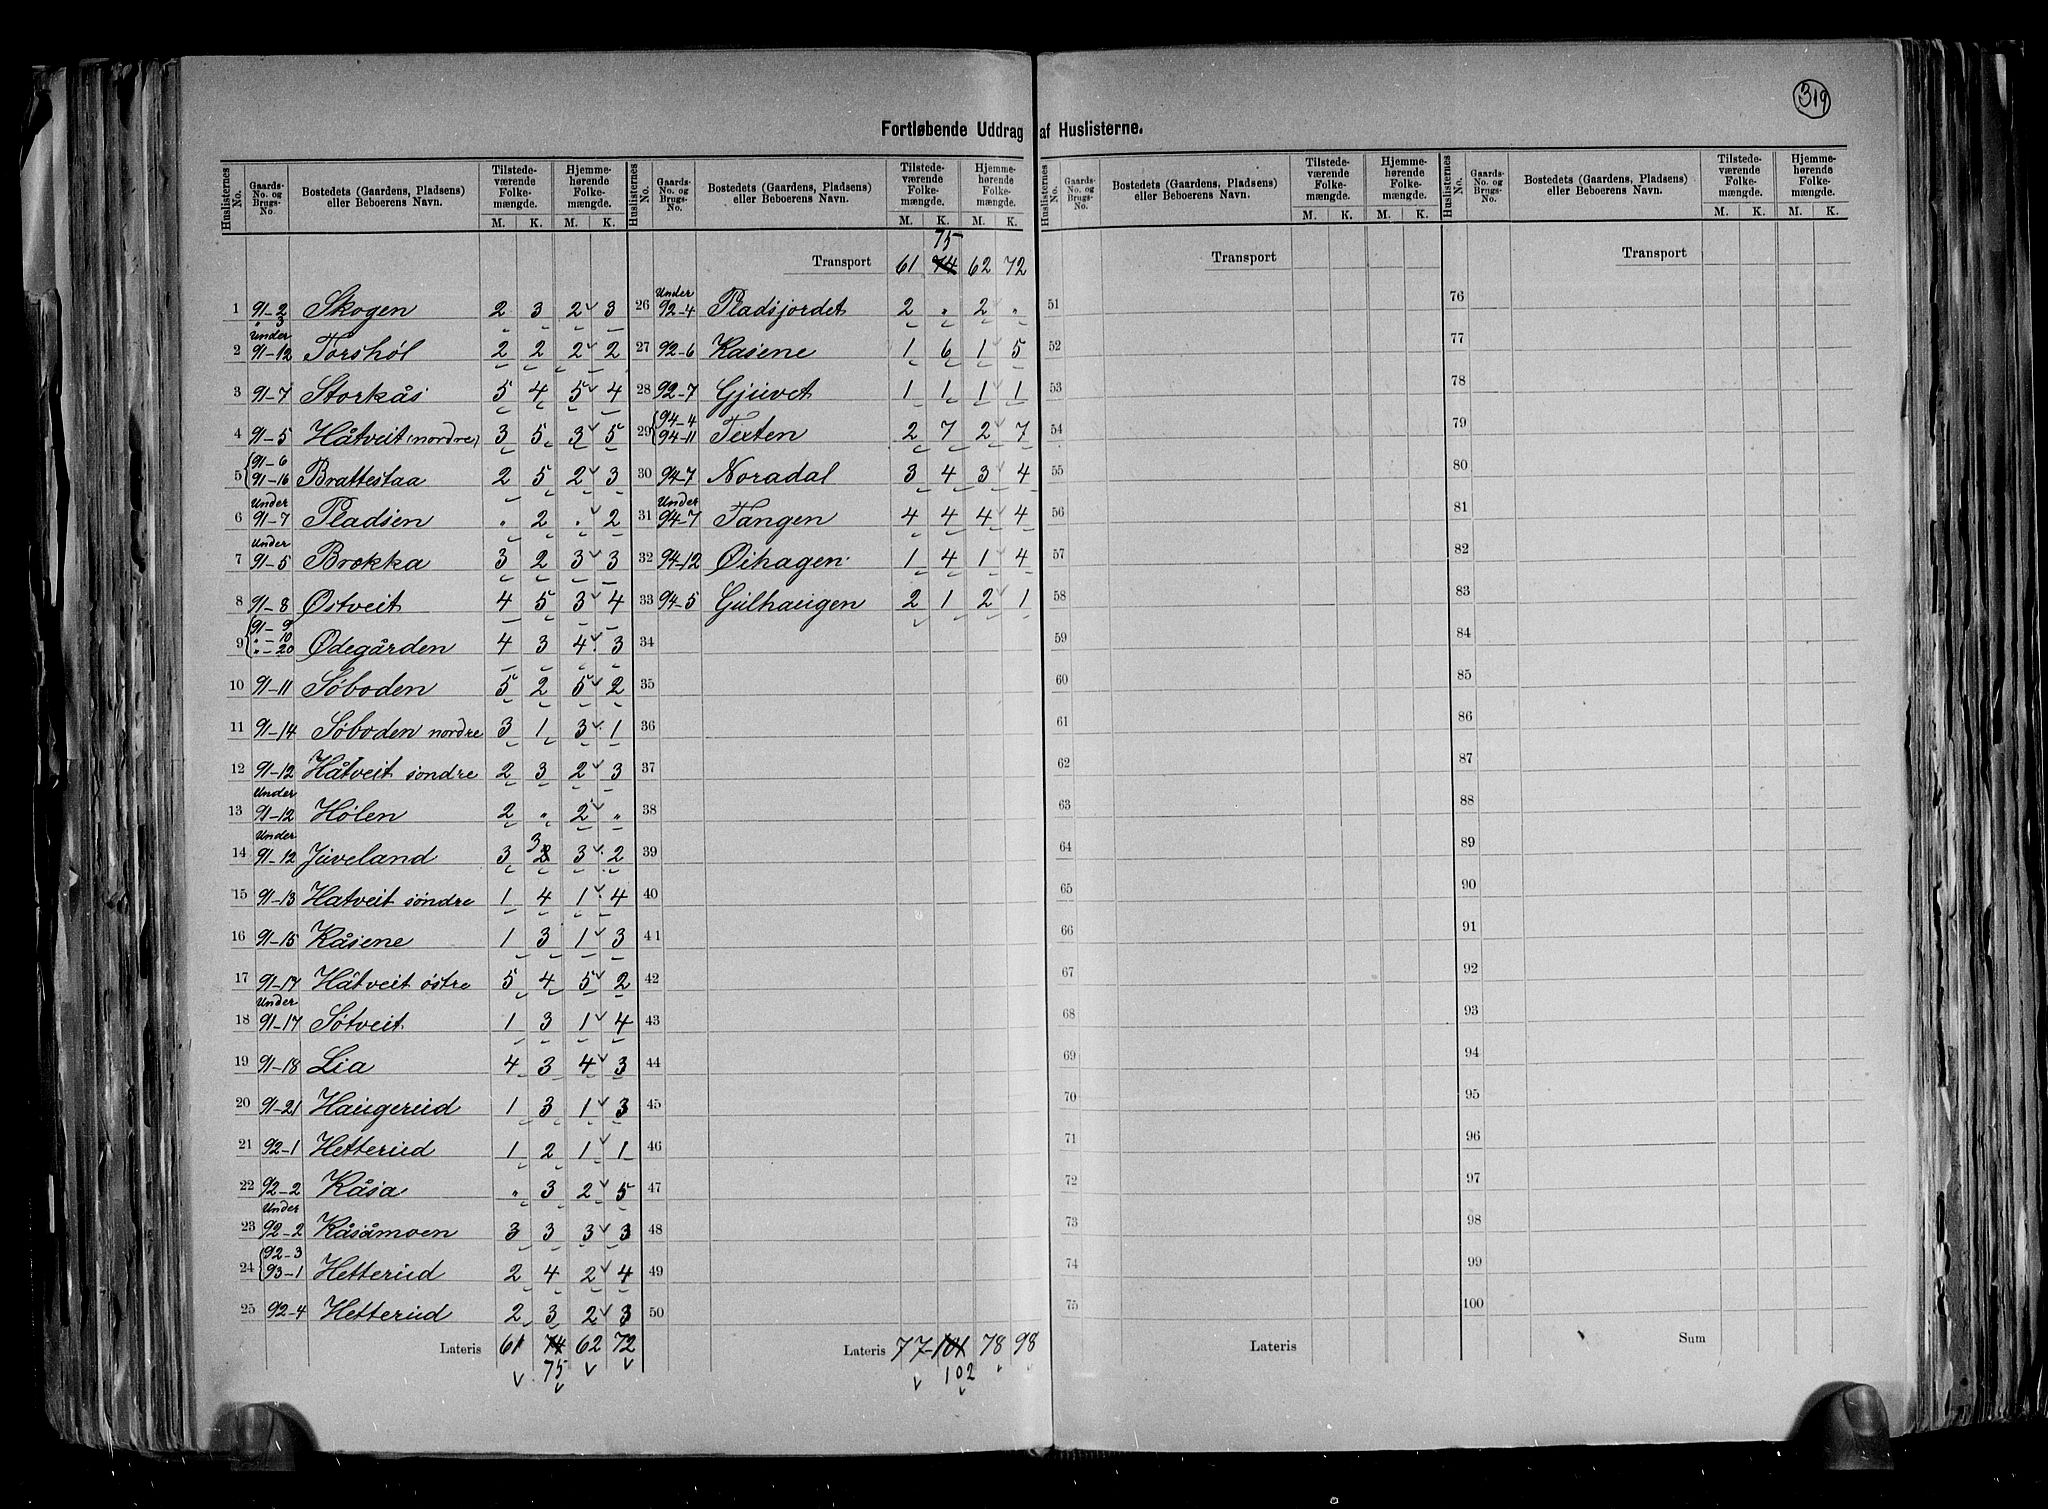 319
Fortløbende Uddrag af Huslisterne.
Huslisternes No. Gaards-No. og Brugs-No. Bostedets (Gaardens, Pladsens) eller Beboerens Navn. Tilstedeværende Folkemængde. M. K. Hjemmehørende Folkemængde. M. K.
1 91-2 " 3 Skogen 2 3 2 3
2 Under 91-12 Torshól 2 2 2 2
3 91-7 Storkås 5 4 5 4
4 91-5 Håtveit (nordre) 3 5 3 5
5 91-6 91-16 Brattestaa 2 5 2 3
6 Under 91-7 Pladsen " 2 " 2
7 Under 91-5 Brokka 3 2 3 3
8 91-8 Østveit 4 5 3 4
9 91-9 "-10 "-20 Ødegården 4 3 4 3
10 91-11 Søboden 5 2 5 2
11 91-14 Søboden nordre 3 1 3 1
12 91-12 Håtveit søndre 2 3 2 3
13 Under 91-12 Hølen 2 " 2 "
14 Under 91-12 Juveland 3 2 3 3 2
15 91-13 Hatveit søndre 1 4 1 4
16 91-15 Kåsene 1 3 1 3
17 91-17 Håtveit østre 5 4 5 2
18 Under 91-17 Søtveit 1 3 1 4
19 91-18 Lia 4 3 4 3
20 91-21 Haugerud 1 3 1 3
21 92-1 Hetterud 1 2 1 1
22 92-2 Kåsa " 3 2 5
23 Under 92-2 Kåsåmoen 3 3 3 3
24 92-3 93-1 Hetterud 2 4 2 4
25 92-4 Hetterud 2 3 2 3
Lateris 61 74 62 72
75
Huslisternes No. Gaards-No. og Brugs-No. Bostedets (Gaardens, Pladsens) eller Beboerens Navn. Tilstedeværende Folkemængde. M. K. Hjemmehørende Folkemængde. M. K.
75
Transport 61 74 62 72
26 Under 92-4 Pladsjordet 2 " 2 "
27 92-6 Kasene 1 6 1 5
28 92-7 Gjuvet 1 1 1 1
29 94-4 94-11 Texten 2 7 2 7
30 94-7 Noradal 3 4 3 4
31 Under 94-7 Tangen 4 4 4 4
32 94-12 Øihagen 1 4 1 4
33 94-5 Gulhaugen 2 1 2 1
34
35
36
37
38
39
40
41
42
43
44
45
46
47
48
49
50
Lateris 77 101 78 98
102
Huslisternes No. Gaards-No. og Brugs-No. Bostedets (Gaardens, Pladsens) eller Beboerens Navn. Tilstedeværende Folkemængde. M. K. Hjemmehørende Folkemængde. M. K.
Transport
51
52
53
54
55
56
57
58
59
60
61
62
63
64
65
66
67
68
69
70
71
72
73
74
75
Lateris
Huslisternes No. Gaards-No. og Brugs-No. Bostedets (Gaardens, Pladsens) eller Beboerens Navn. Tilstedeværende Folkemængde. M. K. Hjemmehørende Folkemængde. M. K.
Transport
76
77
78
79
80
81
82
83
84
85
86
87
88
89
90
91
92
93
94
95
96
97
98
99
100
Sum